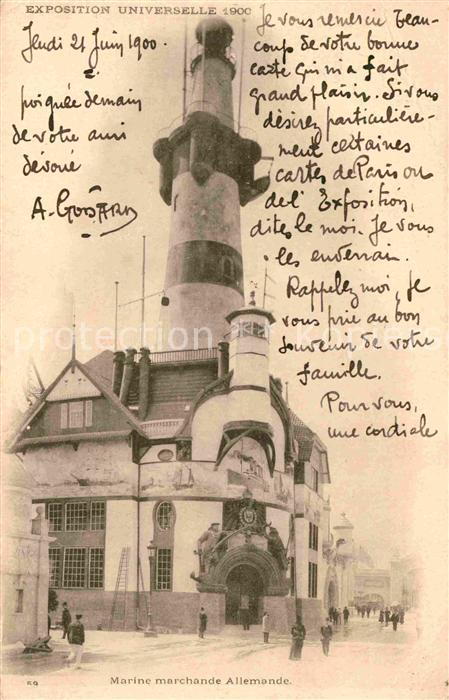 EXPOSITION UNIVERSELLE 1900
Je vous remercie beau-
coup de votre bonne
carte qui m'a fait
grand plaisir. Si vous
désirez particulière-
ment certaines
cartes de Paris ou
de l'Exposition,
dites le moi. Je vous
les enverrai.
Rappelez moi, je
vous prie au bon
souvenir de votre
famille.
Pour vous,
une cordiale
Jeudi 21 Juin 1900.
poignée de main
de votre ami
dévoué
Marine marchande Allemande.
59